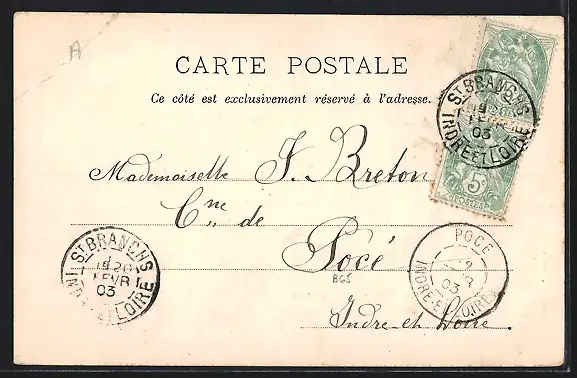 A
CARTE POSTALE
Ce côté est exclusivement réservé à l'adresse.
ST BRANCHS
1
FEVR
03
INDRE ET LOIRE
5c
POSTES
Mademoiselle J. Breton
Cne de
Pocé
BGS
Indre-et-Loire.
ST BRANCHS
1
1920
FEVR
03
INDRE ET LOIRE
POCÉ
2
03
INDRE-ET-LOIRE